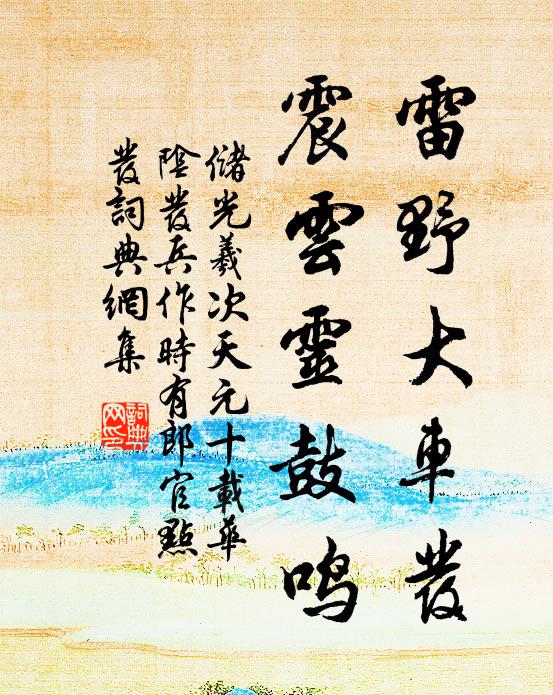 雷野大車發
震雲靈鼓鳴
儲光羲次天元十載華
陰發兵作時有郎官點
發詞典網集